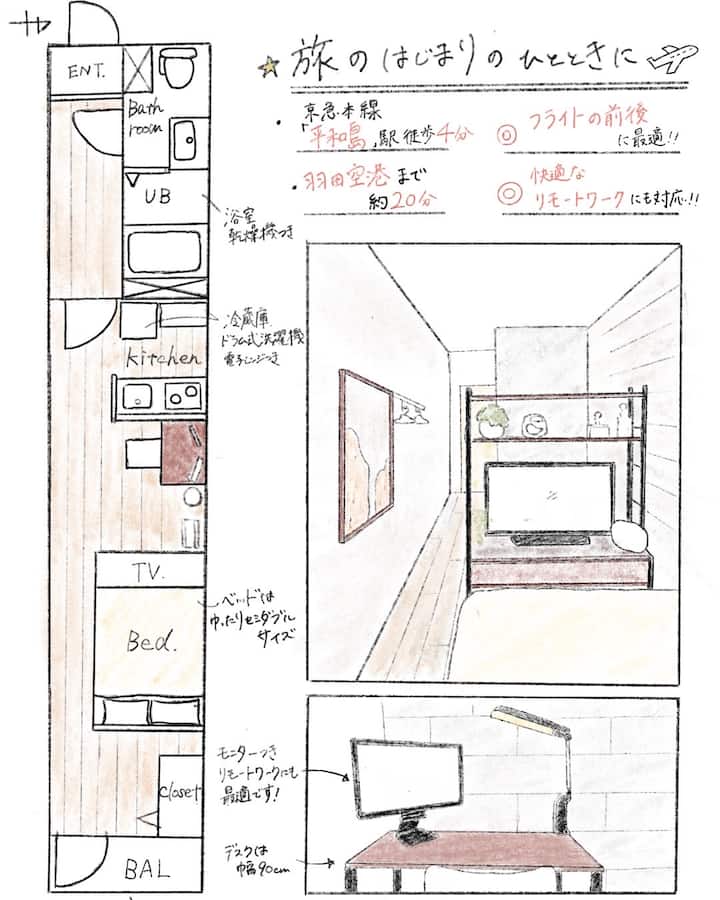 旅のはじまりのひとときに
・京急本線
「平和島」駅徒歩4分
・羽田空港まで
約20分
◎フライトの前後
に最適!!
◎快適な
リモートワークにも対応!!
ENT.
Bath
room
UB
浴室
乾燥機つき
冷蔵庫
ドラム式洗濯機
電子レンジつき
Kitchen
TV.
Bed.
ベッドは
ゆったりセミダブル
サイズ
closet
BAL
モニターつき
リモートワークにも
最適です!
デスクは
幅90cm